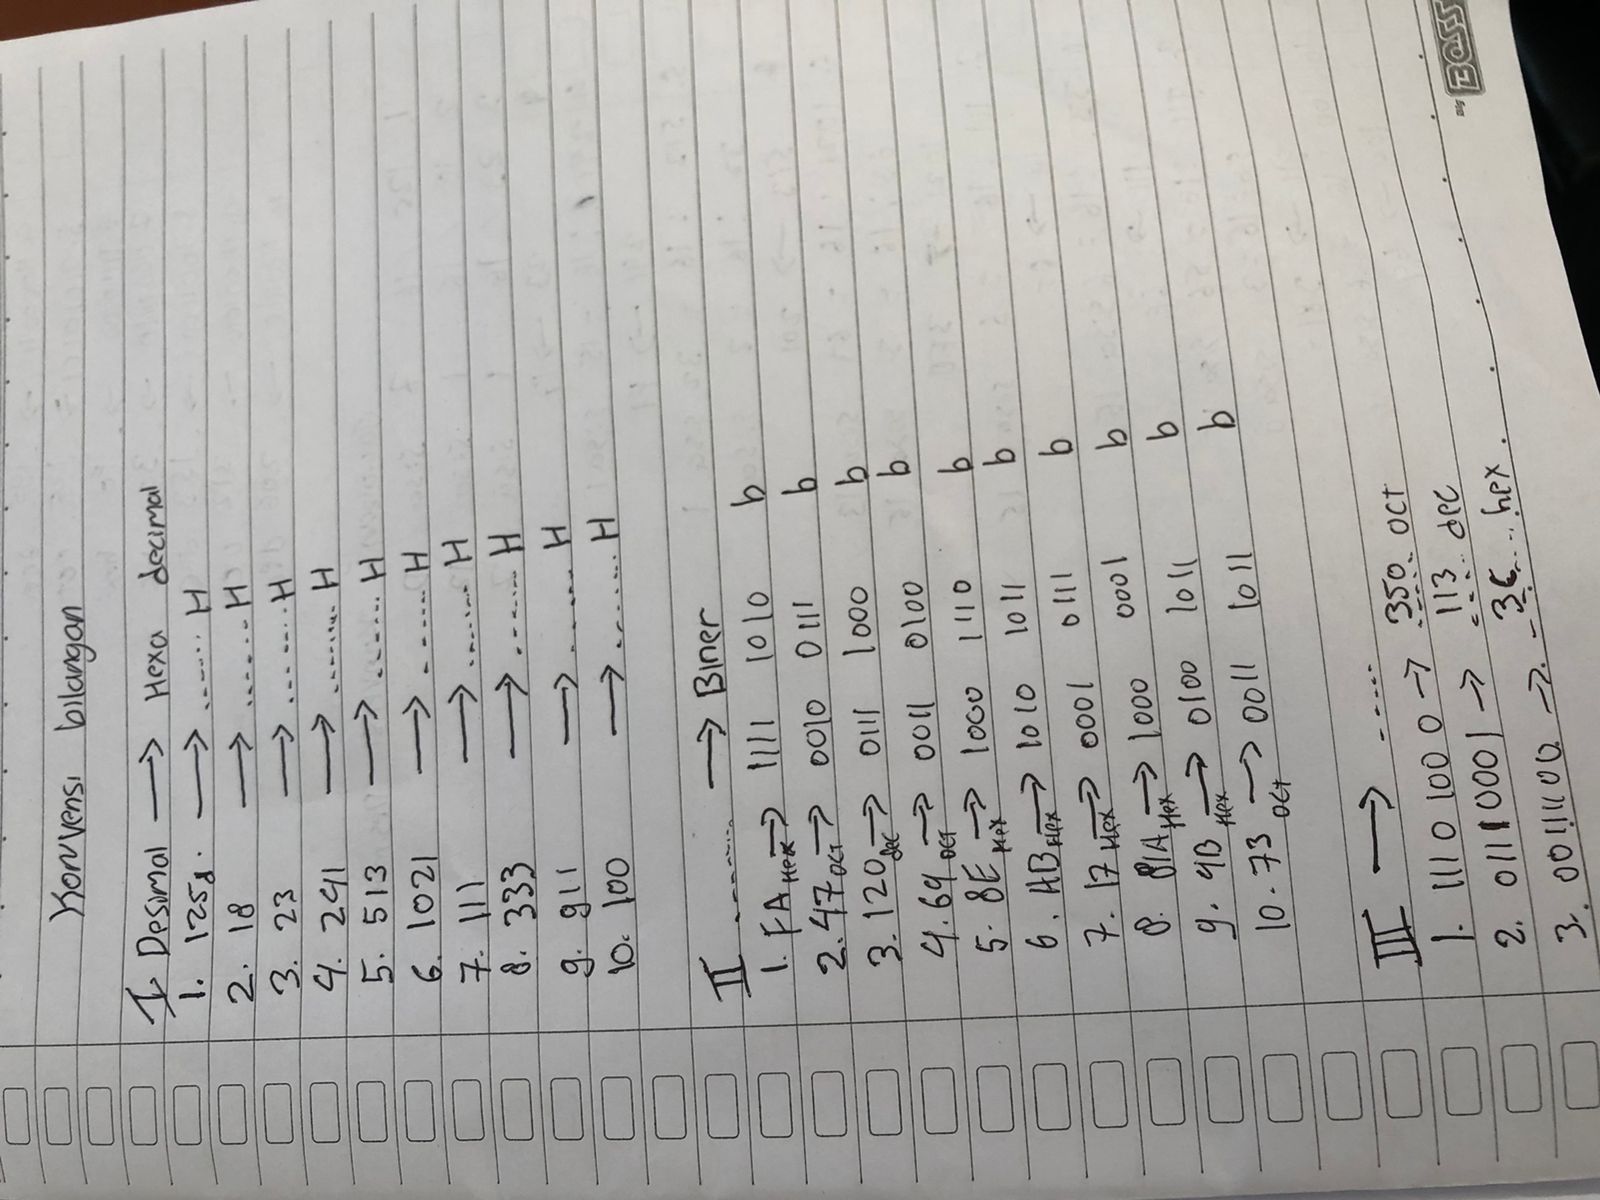 Konversi bilangan
I Desimal → Hexa decimal
1. 125d. → ...... H
2. 18 → ...... H
3. 23 → ...... H
4. 241 → ...... H
5. 513 → ...... H
6. 1021 → ...... H
7. 111 → ...... H
8. 333 → ...... H
9. 911 → ...... H
10. 100 → ...... H
II ....... → Biner
1. FA Hex → 1111 1010 b
2. 47 OCT → 0010 0111 b
3. 120 dec → 0111 1000 b
4. 64 OCT → 0011 0100 b
5. 8E Hex → 1000 1110 b
6. AB Hex → 1010 1011 b
7. 17 Hex → 0001 0111 b
8. 81A Hex → 1000 0001 b
9. 4B Hex → 0100 1011 b
10. 73 OCT → 0011 1011 b
III → .....
1. 1110 1000 → 350 OCT
2. 0111 0001 → 113 dec
3. 00111100 → hex.
Big BOSS